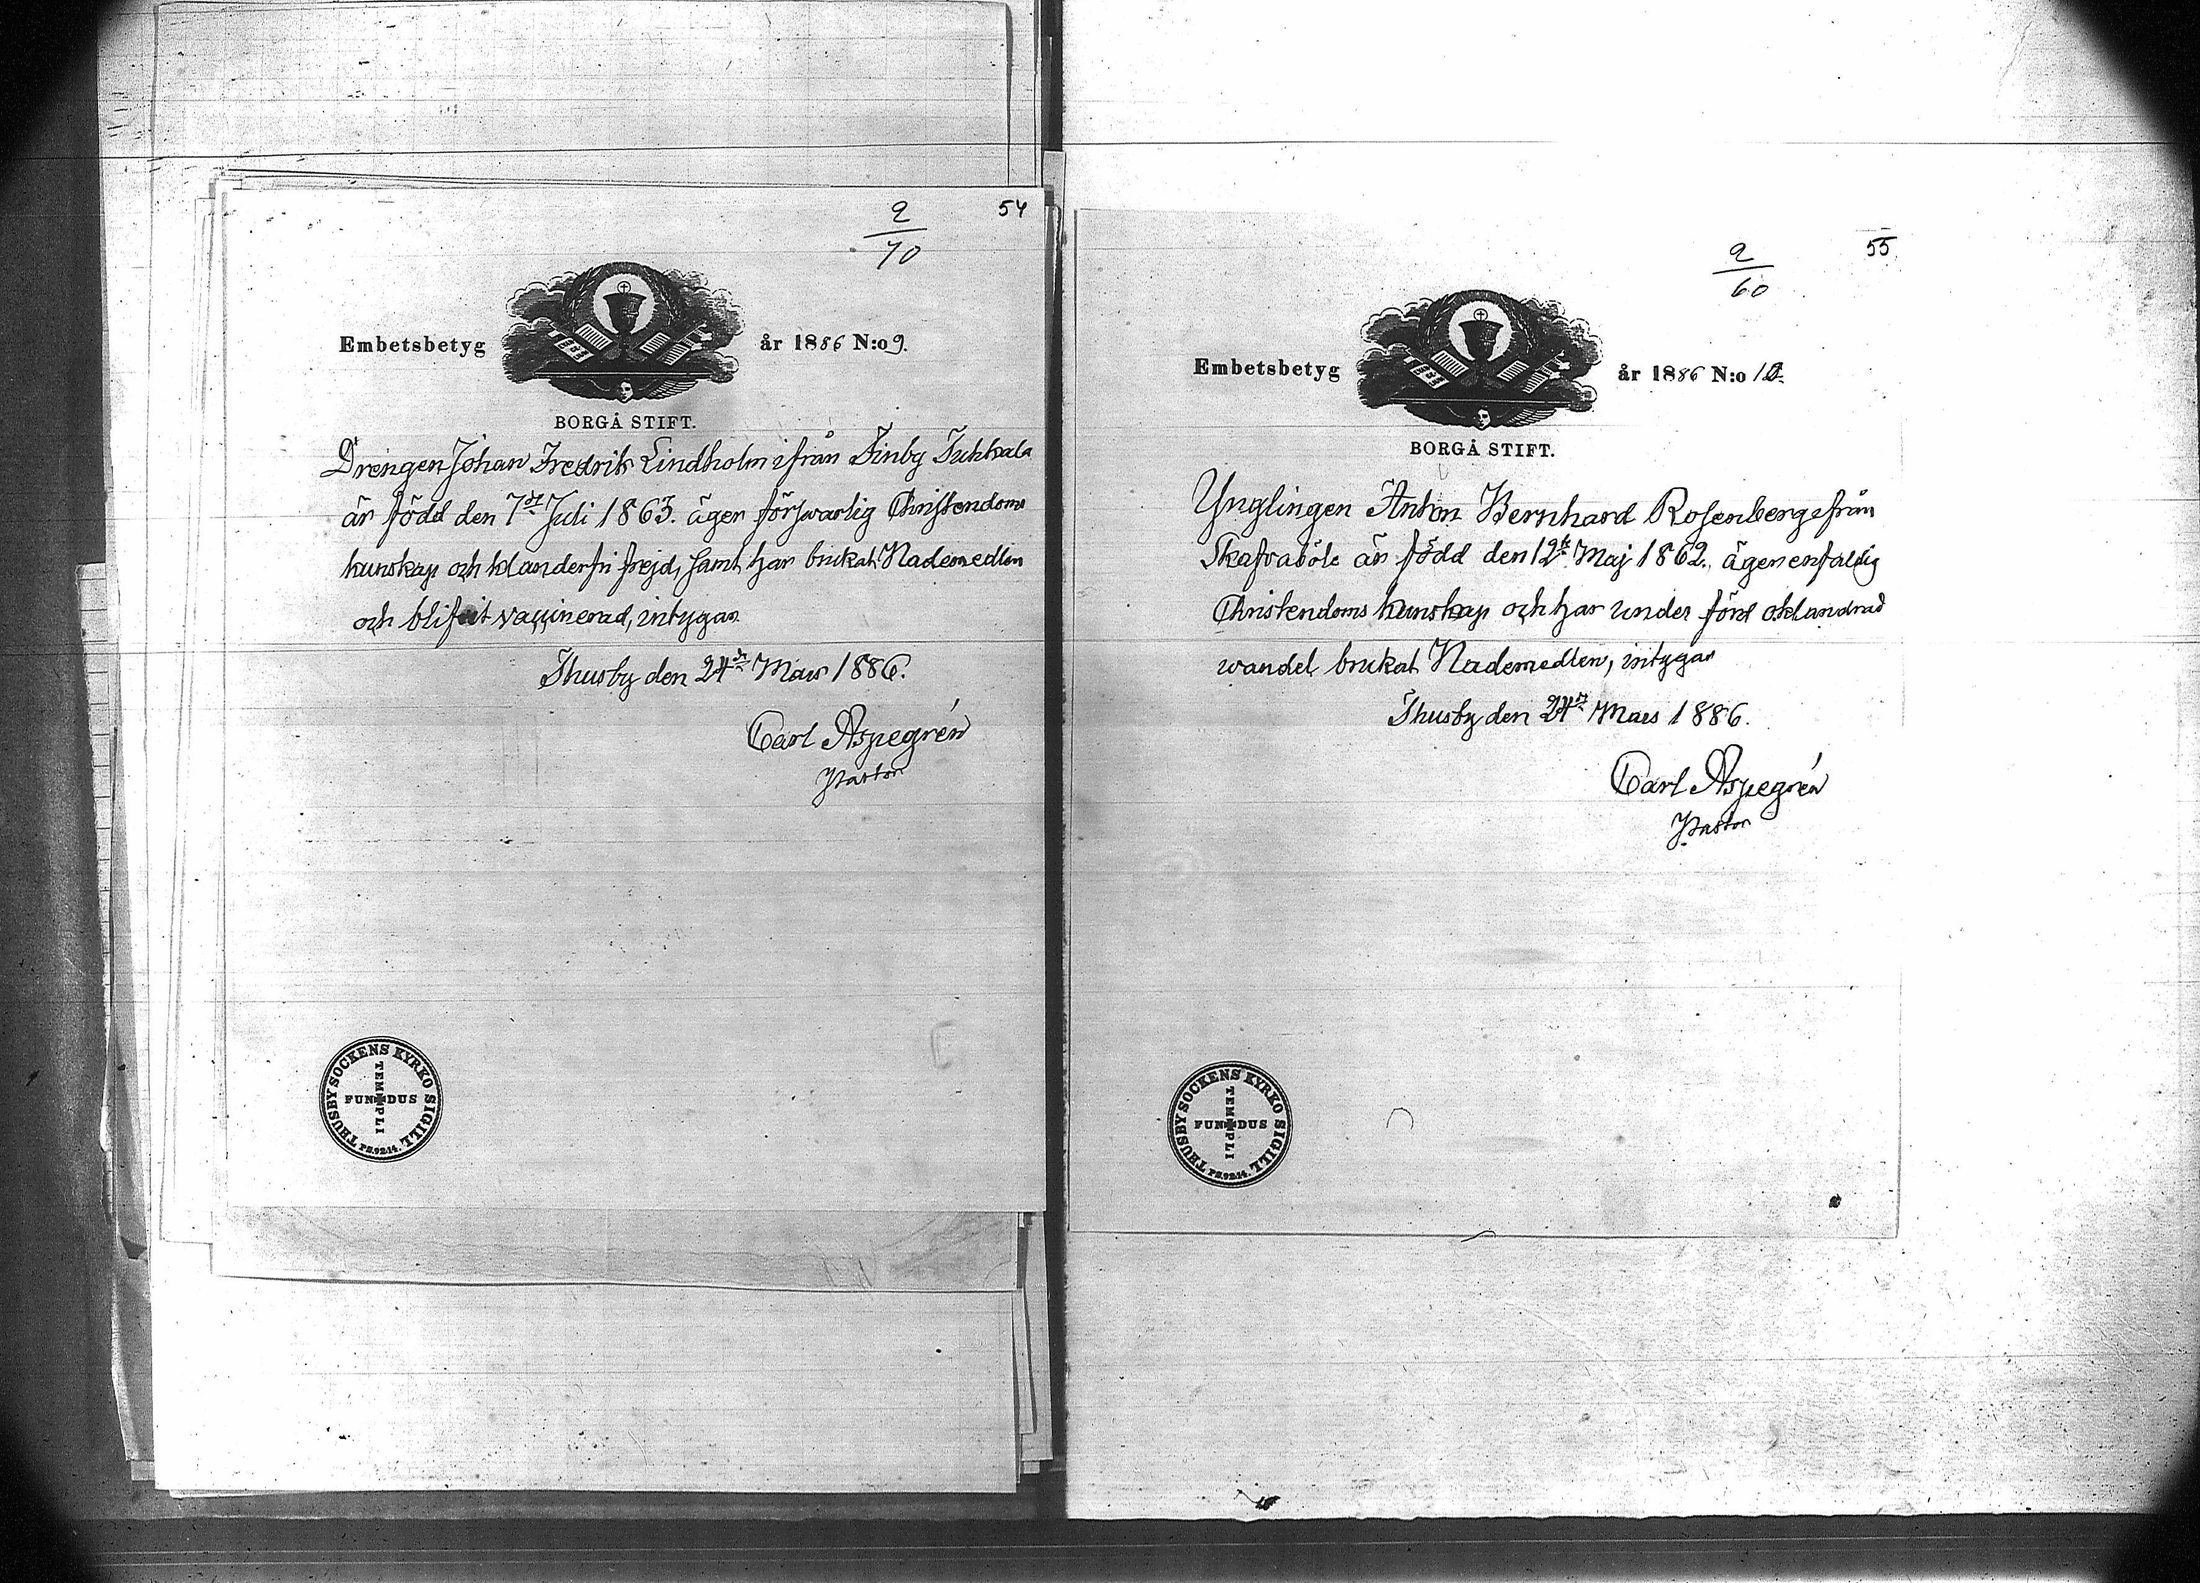 2
70
54
Embetsbetyg år 1886 N:o 9.
BORGÅ STIFT.
Drengen Johan Fredrik Lindholm ifrån Finby Juhkala
är född den 7de Juli 1863. äger försvarlig Christendoms
kunskap och klanderfri frejd, samt har brukat Nademedlen
och blifvit vaccinerad, intygar
Thusby den 24de Mars 1886.
Carl Aspegrén
Pastor
THUSBY SOCKENS KYRKO SIGILL
FUNDUS
TEMPLI
PS.92.14.
2
60
55
Embetsbetyg år 1886 N:o 10.
BORGÅ STIFT.
Ynglingen Anton Bernhard Rosenberg ifrån
Skafvaböle är född den 12te Maj 1862. äger enfaldig
Christendoms kunskap och har under förd oklandrad
wandel brukat Nademedlen, intygar
Thusby den 24de Mars 1886.
Carl Aspegrén
Pastor
THUSBY SOCKENS KYRKO SIGILL
FUNDUS
TEMPLI
PS.92.14.